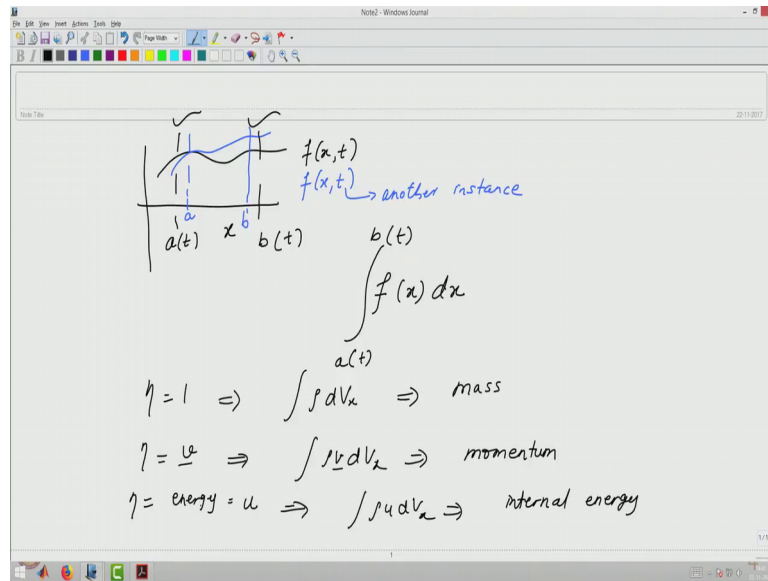 Note2 - Windows Journal
File Edit View Insert Actions Tools Help
Page Width
B I
Note Title
22-11-2017
f(x,t)
f(x,t) → another instance
a
b
a(t) x b(t)
b(t)
∫ f(x) dx
a(t)
η = 1 ⇒ ∫ ρ dVₓ ⇒ mass
η = v ⇒ ∫ ρ v dVₓ ⇒ momentum
η = energy = u ⇒ ∫ ρ u dVₓ ⇒ internal energy
1/1
1